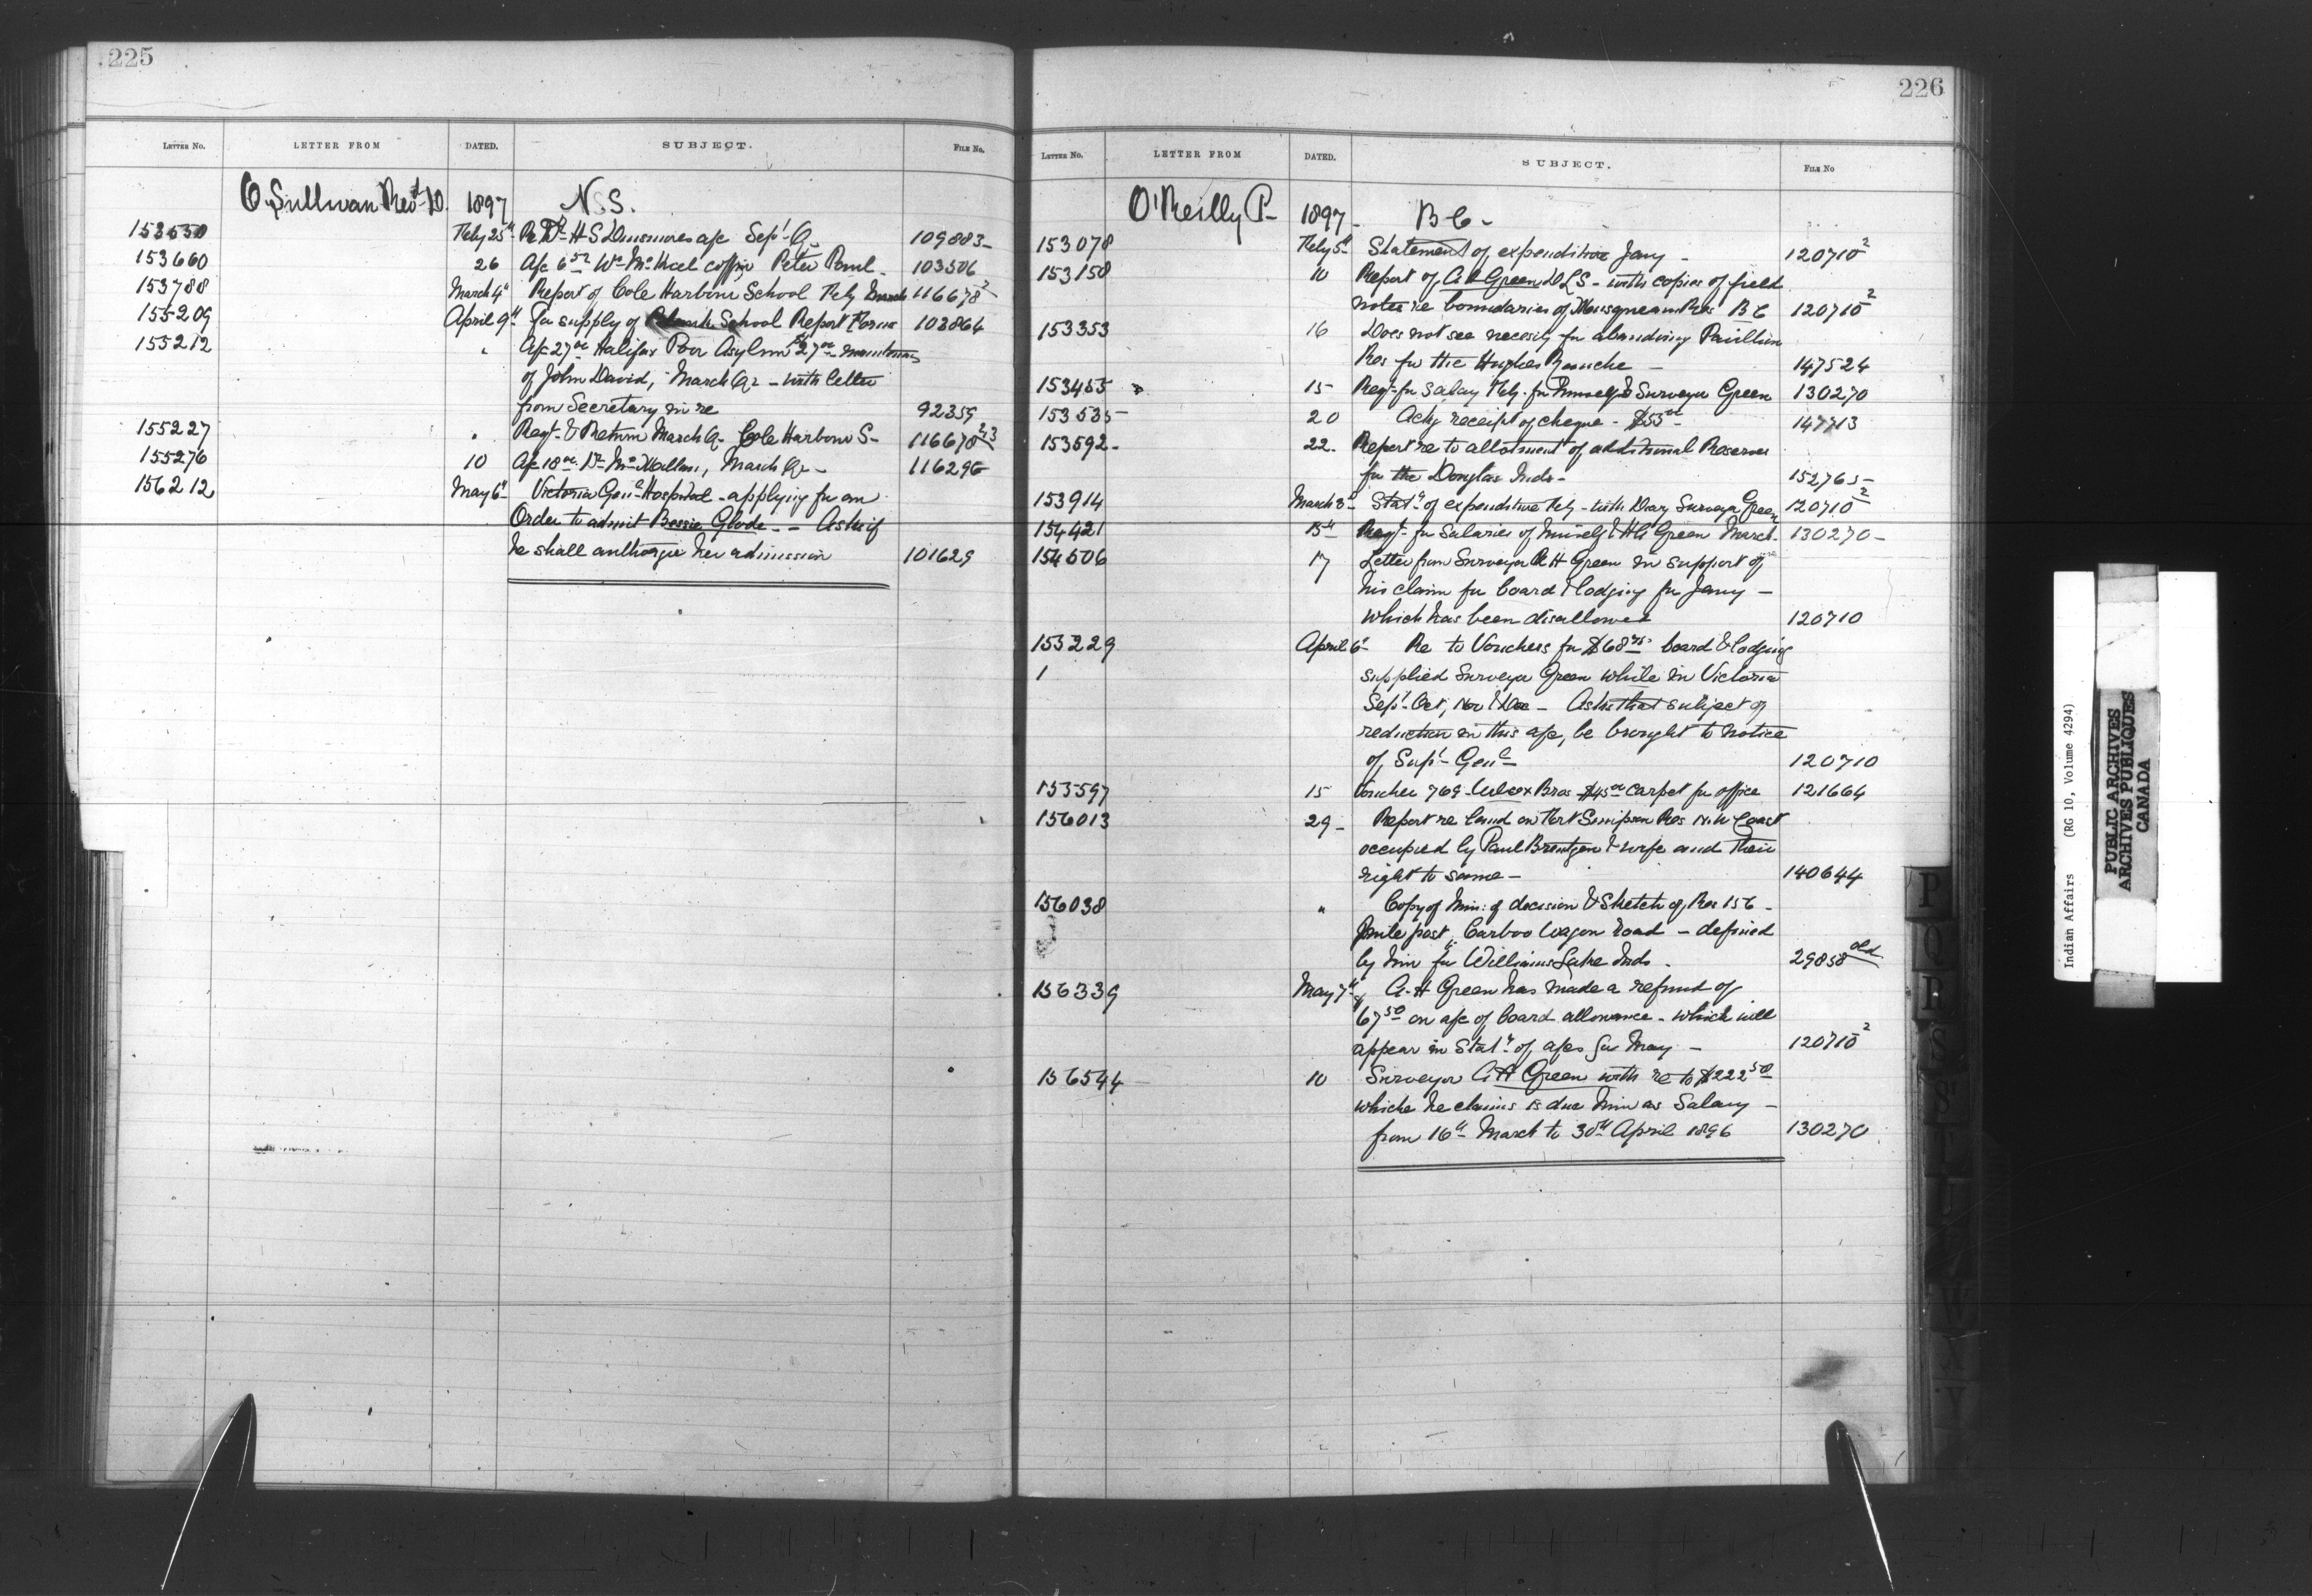 225
LETTER NO. LETTER FROM DATED. SUBJECT. FILE NO.
O'Sullivan Revd D. 1897 N.S.
153550 Feby 25th Re Dr H S Dinsmores a/c Sept Q. 109883
153660 26 A/c 6 52 Wm coffin Peter Paul 103506
153788 March 4th Report of Cole Harbour School Feby 116678 2
155209 April 9th For supply of School Report Forms 103864
155212 " A/c 27 00 Halifax Poor Asylum 27 00 maintenance
of John David, March Qr - with letter
from Secretary in re 92359
155227 " Regt & Return March Q. Cole Harbour S- 116678 2/3
155276 10 A/c 18 00 Dr March Qr - 116296
156212 May 6th Victoria Genl Hospital - applying for an
Order to admit Bessie Glode - - Asks if
he shall authorize her admission 101629
226
LETTER NO. LETTER FROM DATED. SUBJECT. FILE NO
O'Reilly P- 1897- B C-
153078 Feby 5th Statement of expenditure Jany - 120710 2
153158 10 Report of A H Green DLS - with copies of field
notes re boundaries of Musqueam Res B C 120710 2
153353 16 Does not see necesity for abandoning Pavillion
Res for the Hughes Ranche - 147524
153455 15 Reqt- for salary Feby. for himself & Surveyor Green 130270
153535 20 Ackg receipt of cheque - $55 00 - 147713
153592- 22. Report re to allotment of additional Reserves
for the Douglas Inds- 152765-
153914 March 3d- Statt of expenditure Feby - with Diary Surveyor Green 120710 2
154421 15th Reqt- for Salaries of himself & A H Green March. 130270-
154506 17 Letter from Surveyor A H Green in support of
his claim for board & lodging for Jany -
which has been disallowed 120710
155229 April 6th Re to Vouchers for $68 75 board & lodging
supplied Surveyor Green while in Victoria
Sept- Oct, Nov & Dec - Asks that subject of
reduction in this a/c, be brought to notice
of Supt- Genl- 120710
155597 15 Voucher 769 Weiler Bros $45 00 carpet for office 121664
156013 29- Report re land on Fort Simpson Res N.W Coast
occupied by Paul Brentzen & wife and their
right to same - 140644
156038 " Copy of Min: of decision & Sketch of Res 156 -
mile post, Carboo Wagon Road - defined
by him for Williams Lake Inds. 29858 old
156339 May 7th A. H Green has made a refund of
67 50 on a/c of board allowance - which will
appear in Statt of a/cs for May - 120710 2
156544 10 Surveyor A H Green with re to $222 50
whiche he claims is due him as Salary -
from 16th March to 30th April 1896 130270
P
Q
R
S
T
U
W
X
Y
Indian Affairs (RG 10, Volume 4294)
PUBLIC ARCHIVES
ARCHIVES PUBLIQUES
CANADA